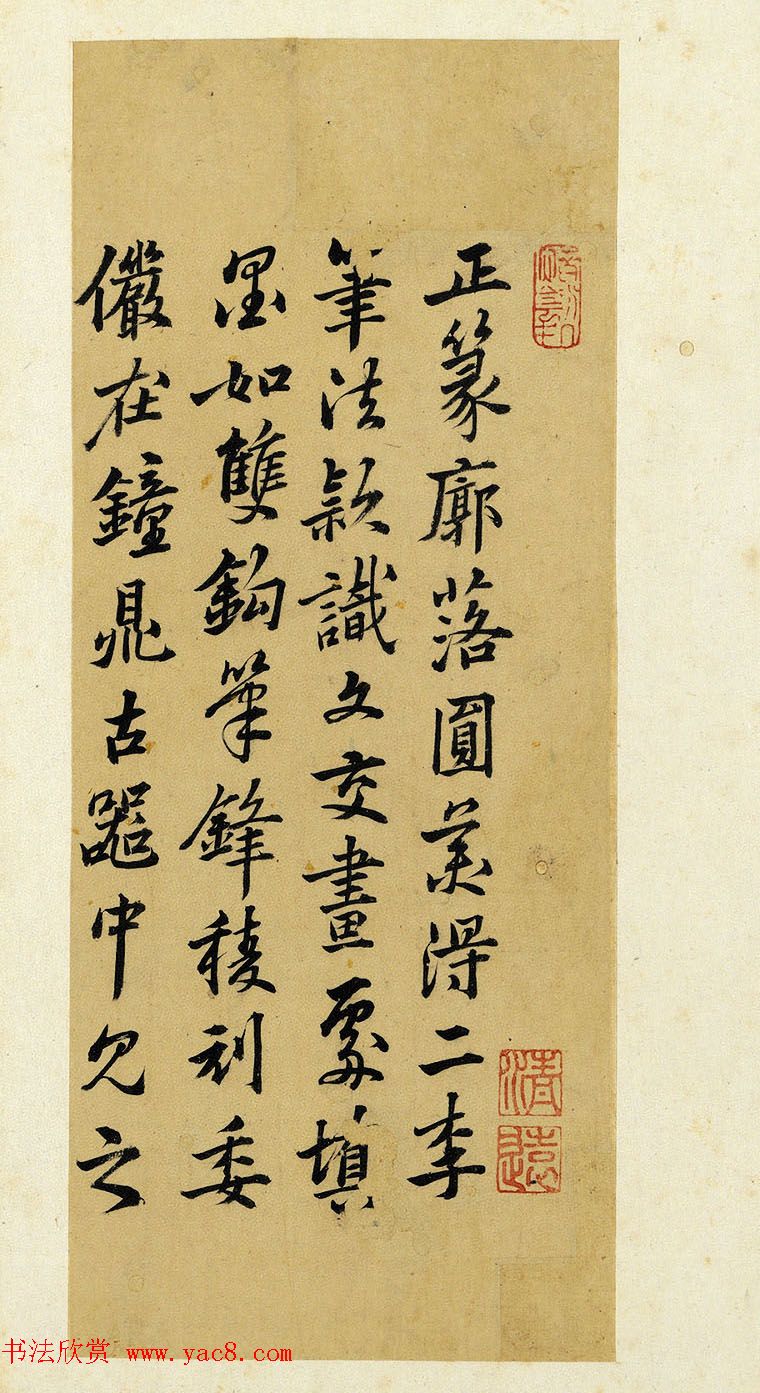 正篆廓落圓美得二李
筆法款識文交畫處填
墨如雙鉤筆鋒稜利委
儼在鐘鼎古器中見之
清遠
书法欣赏 www.yac8.com